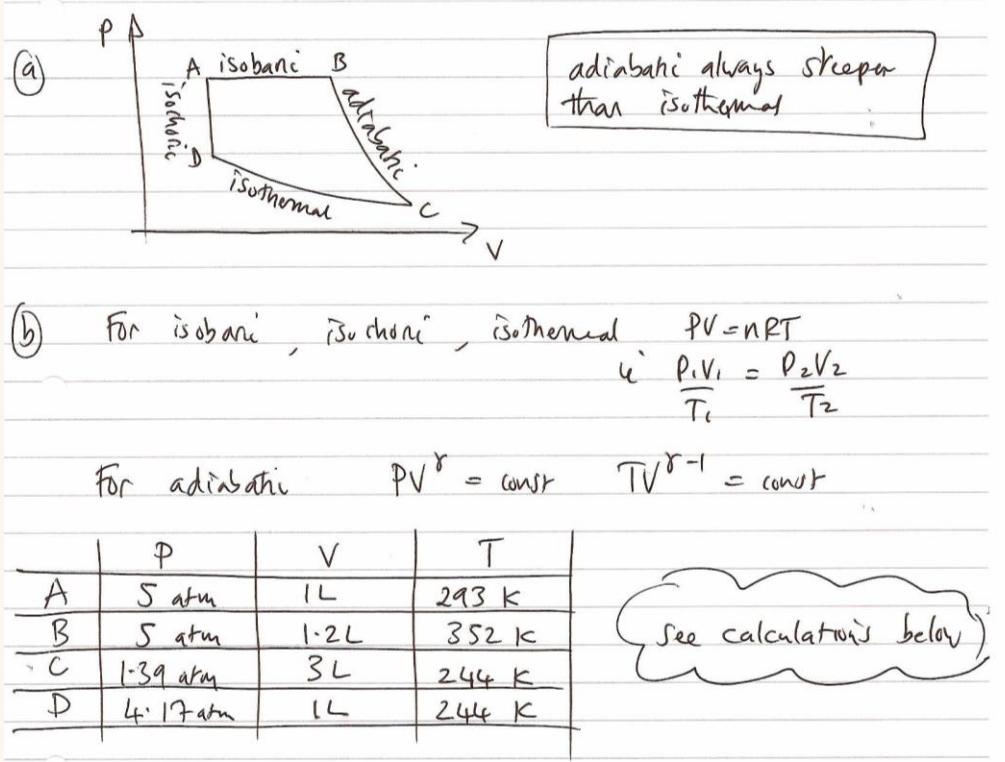 P
(a)
A isobaric B
isochoric
adiabatic
D
isothermal
C
V
adiabatic always steeper
than isothermal
(b) For isobaric, isochoric, isothermal PV = nRT
ie P₁V₁/T₁ = P₂V₂/T₂
For adiabatic PV^γ = const TV^(γ-1) = const
P V T
A 5 atm 1L 293 K
B 5 atm 1.2L 352 K
C 1.39 atm 3L 244 K
D 4.17 atm 1L 244 K
see calculations below